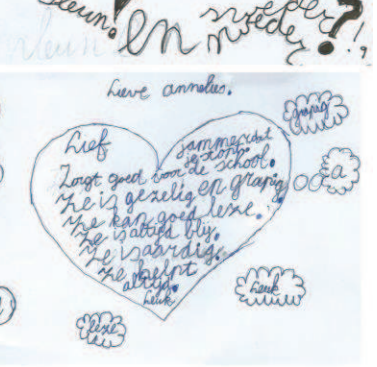 en
moeder?!
Lieve annelies.
grapig
Lief
jammer dat
je stopt.
Zorgt goed voor de school.
ze is gezelig en grapig
ze kan goed lesse.
ze is altijd blij.
ze is aardig.
ze helpt
altijd.
Leuk
Leuk
lesse